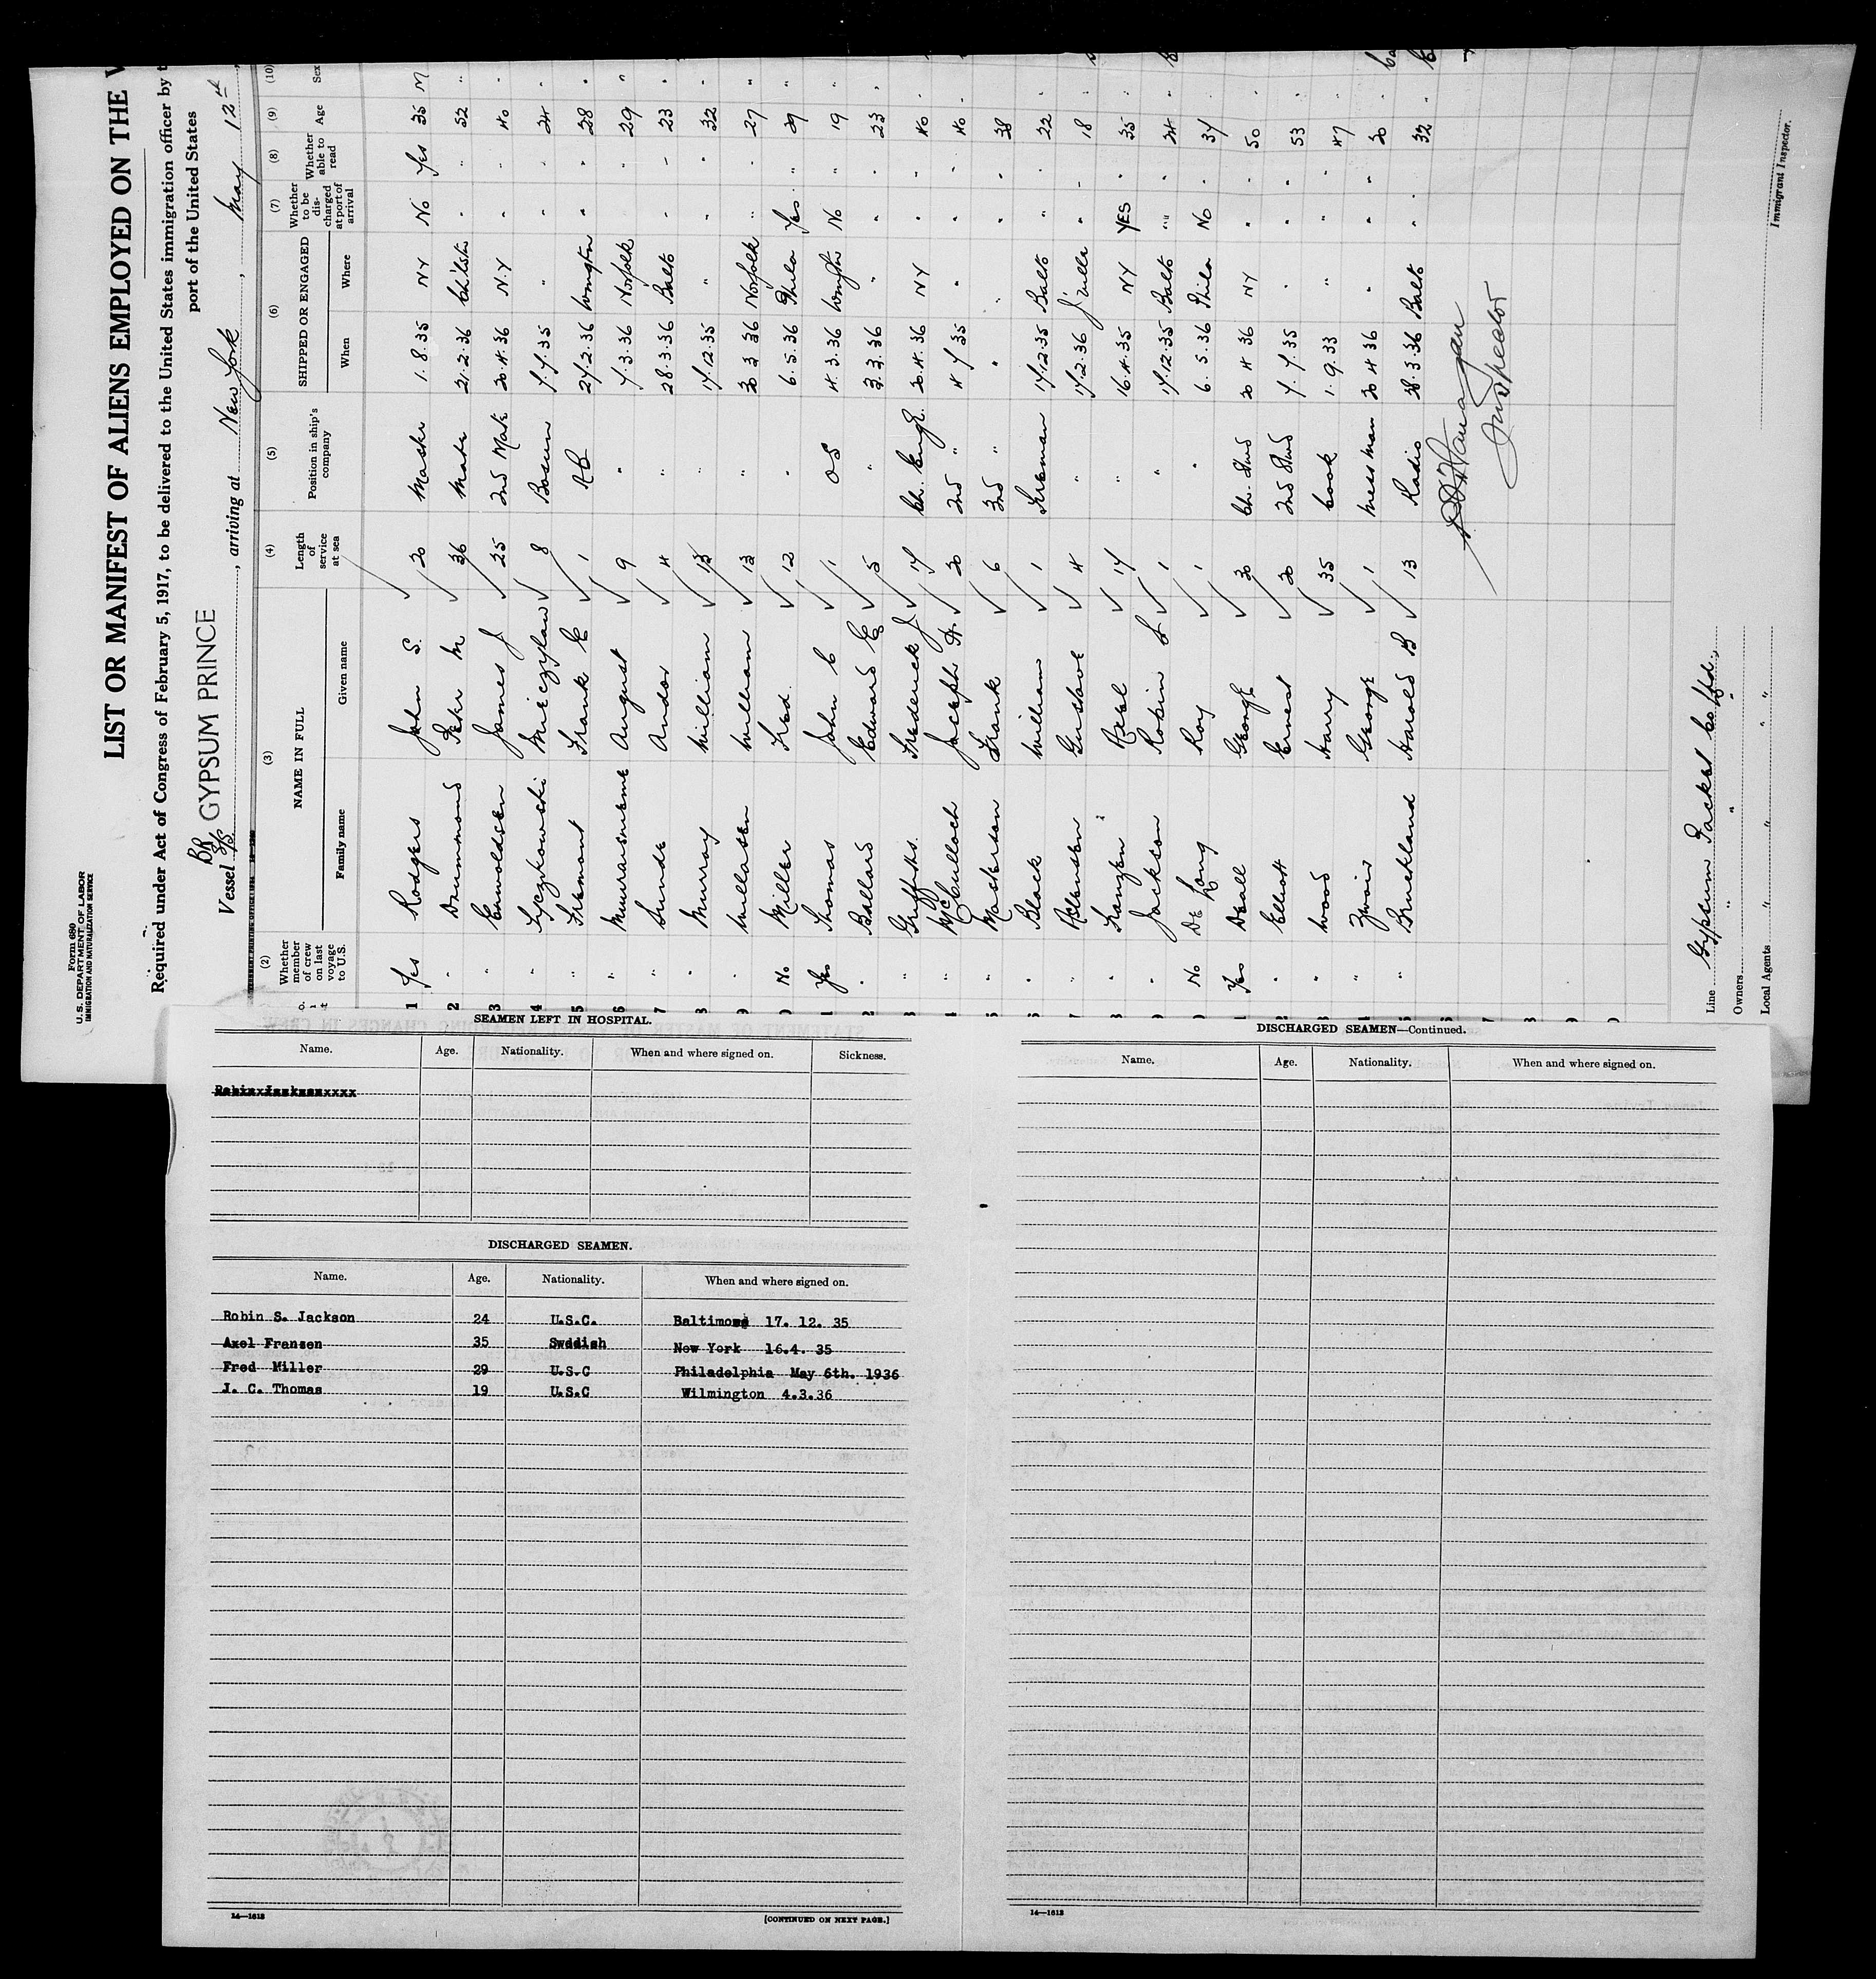 Form 680
U. S. DEPARTMENT OF LABOR
IMMIGRATION AND NATURALIZATION SERVICE
LIST OR MANIFEST OF ALIENS EMPLOYED ON THE
Required under Act of Congress of February 5, 1917, to be delivered to the United States immigration officer by
port of the United States
Vessel BR S/S GYPSUM PRINCE, arriving at New York, May 12th
(2) (3) (4) (5) (6) (7) (8) (9) (10)
Whether member of crew on last voyage to U.S. NAME IN FULL Length of service at sea Position in ship's company SHIPPED OR ENGAGED Whether to be discharged at port of arrival Whether able to read Age Sex
Family name Given name When Where
1 Yes Rodgers John S. 20 Master 1.8.35 NY No Yes 35 M
2 " Drummond Peter M 36 Mate 21.2.36 " " 52 "
3 " Enwoldsen James J 25 2nd Mate 20.4.36 N.Y " " 40 "
4 " Lyczkowski Mieczyslaw 8 Bosun 7.7.35 " " " 24 "
5 " Fremont Frank E 1 AB 27.2.36 Wmgton " " 28 "
6 " August 9 " 7.3.36 Norfolk " " 29 "
7 " Sunde Andor 4 " 28.3.36 Balto " " 23 "
8 " Murray William 13 " 17.12.35 " " " 32 "
9 " Willasen William 13 " Norfolk " " 27 "
0 No Miller Fred. 12 " 6.5.36 Phila Yes " 29 "
1 Yes Thomas John C 1 OS 4.3.36 Wmgton No " 19 "
2 " Ballard Edward E 5 " 3.3.36 " " " 23 "
3 " Griffiths. Frederick J 17 Ch. Engr. 20.4.36 NY " " 40 "
4 " McCulloch Joseph A. 20 2nd " 4 7 35 " " " 40 "
5 " Masterson Frank 6 3rd " " " " " 38 "
6 " Black William 1 Fireman 17.12.35 Balto " " 22 "
7 " Gustave 4 " 17.2.36 J'ville " " 18 "
8 " Franzen Axel 17 " 16.4.35 NY YES " 35 "
9 " Jackson Robin S 1 " 17.12.35 Balto " " 24 "
0 No De Long Roy 1 " 6.5.36 Phila No " 34 "
1 Yes Deall George 30 Ch. Stwd 20 4 36 NY " " 50 "
2 " Elliott Ernest 20 2nd Stwd 7.7.35 " " " 53 "
3 " Wood Harry 35 Cook 1.9.33 " " " 47 "
4 " George 1 Messman 20 4 36 " " " 20 "
5 " Bruckland Harold B 13 Radio 28.3.36 Balto " " 32 "
Inspector
Line Gypsum Packet Co Ltd.,
Owners " " "
Local Agents " " " "
Immigrant Inspector.
SEAMEN LEFT IN HOSPITAL.
Name. Age. Nationality. When and where signed on. Sickness.
DISCHARGED SEAMEN.
Name. Age. Nationality. When and where signed on.
Robin S. Jackson 24 U.S.C. Baltimore 17. 12. 35
Axel Franzen 35 Swedish New York 16.4. 35
Fred Miller 29 U.S.C Philadelphia May 6th. 1936
J. C. Thomas 19 U.S.C Wilmington 4.3.36
14—1613
[CONTINUED ON NEXT PAGE.]
DISCHARGED SEAMEN—Continued.
Name. Age. Nationality. When and where signed on.
14—1613